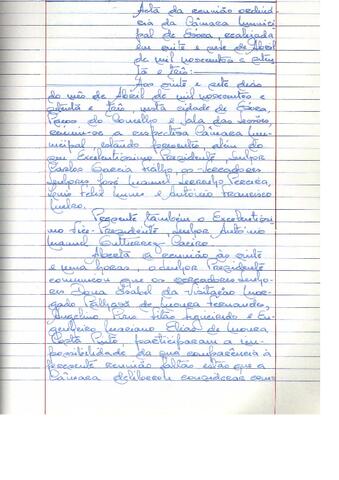 Acta da reunião ordiná-
ria da Câmara Munici-
pal de Évora, realizada
em vinte e sete de Abril
de mil novecentos e seten-
ta e três:
Aos vinte e sete dias
do mês de Abril de mil novecentos e
setenta e três, nesta cidade de Évora,
Paços do Concelho e sala das sessões,
reuniu-se a respectiva Câmara Mu-
nicipal, estando presente, além do
seu Excelentíssimo Presidente, Senhor
Carlos Garcia os vereadores
Senhores José Manuel Ferreira,
Félix e António Francisco
Presente também o Excelentíssi-
mo Vice-Presidente, Senhor António
Manuel Gutierrez
Aberta a reunião às vinte
e uma horas, o Senhor Presidente
comunicou que os vereadores Senho-
res Dona Isabel da Visitação Mor-
gado Palhavã de Moura Fernandes,
Angelino Pires Vilão Figueiredo e En-
genheiro Mariano Elias de Moura
Costa Pinto, participaram a im-
possibilidade da sua comparência à
presente reunião faltas estas que a
Câmara deliberou considerar com-